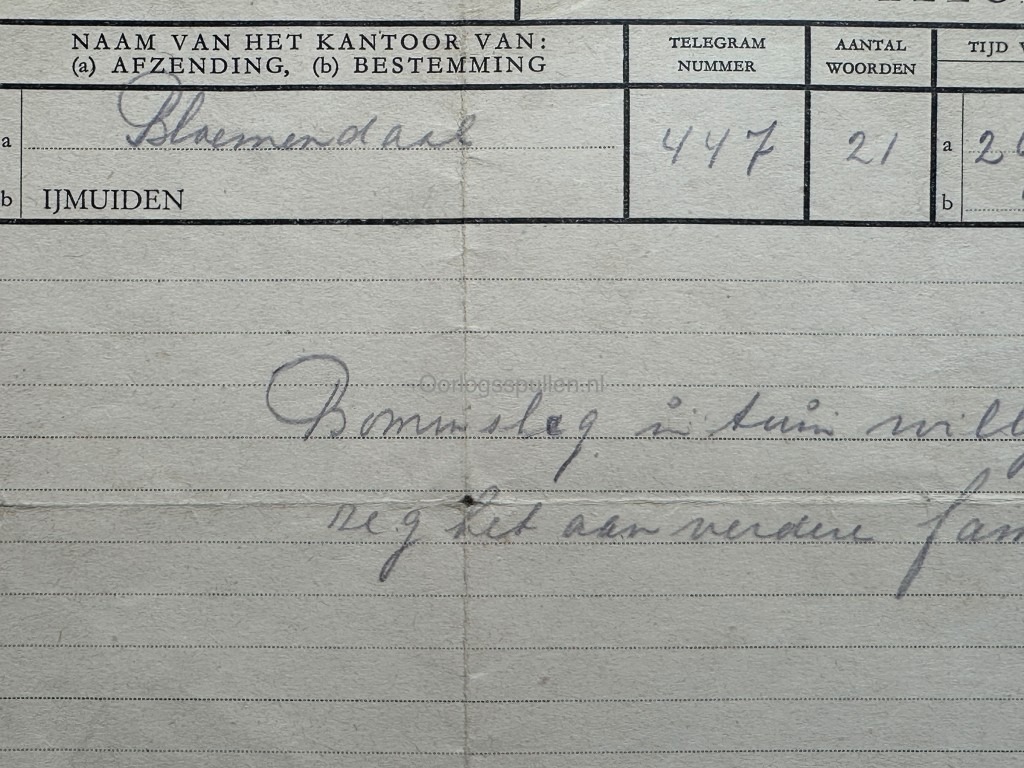 NAAM VAN HET KANTOOR VAN: TELEGRAM AANTAL TIJD
(a) AFZENDING, (b) BESTEMMING NUMMER WOORDEN
a Bloemendaal 447 21 a 2
b IJMUIDEN b
Oorlogsspullen.nl
Bominslag in tuin
zeg het aan verdere fam